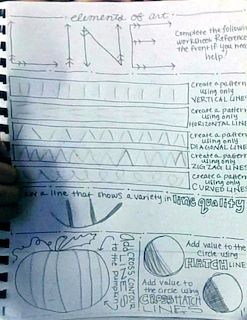 elements of art
LINE
Complete the following
worksheet. Reference
the front if you need
help!
Create a pattern
using only
VERTICAL LINES
Create a pattern
using only
HORIZONTAL LINES
Create a pattern
using only
DIAGONAL LINES
Create a pattern
using only
ZIGZAG LINES
Create a pattern
using only
CURVED LINES
a line that shows a variety in line quality
Add CROSS CONTOUR
LINES
to the pumpkin
Add value to the
Circle using
HATCH LINES
Add value to the
Circle using
CROSSHATCH
LINES